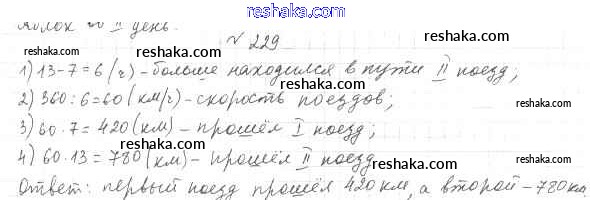 reshaka.com
яблок во II день.
reshaka.com
№ 229
reshaka.com
1) 13-7=6 (ч) - больше находился в пути II поезд;
reshaka.com
2) 360:6=60 (км/ч) - скорость поездов;
reshaka.com
3) 60·7=420 (км) - прошёл I поезд;
reshaka.com
4) 60·13=780 (км) - прошёл II поезд
reshaka.com
reshaka.com
Ответ: первый поезд прошёл 420 км, а второй - 780 км.
reshaka.com
reshaka.com